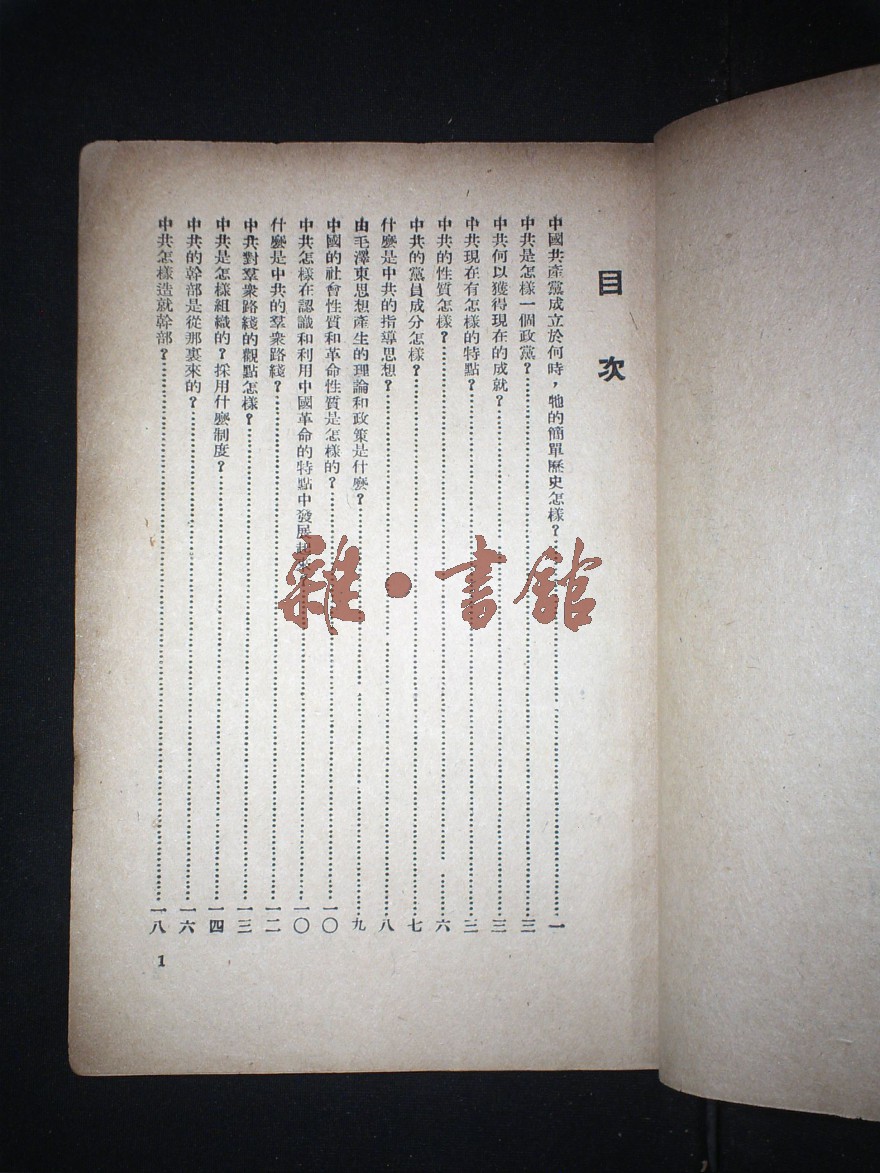 目次
中國共產黨成立於何時，牠的簡單歷史怎樣？……一
中共是怎樣一個政黨？……三
中共何以獲得現在的成就？……三
中共現在有怎樣的特點？……三
中共的性質怎樣？……六
中共的黨員成分怎樣？……七
什麼是中共的指導思想？……八
由毛澤東思想產生的理論和政策是什麼？……九
中國的社會性質和革命性質是怎樣的？……一〇
中共怎樣在認識和利用中國革命的特點中發展起來……一〇
什麼是中共的羣衆路綫？……一二
中共對羣衆路綫的觀點怎樣？……一三
中共是怎樣組織的？採用什麼制度？……一四
中共的幹部是從那裏來的？……一六
中共怎樣造就幹部？……一八
1
雜·書館